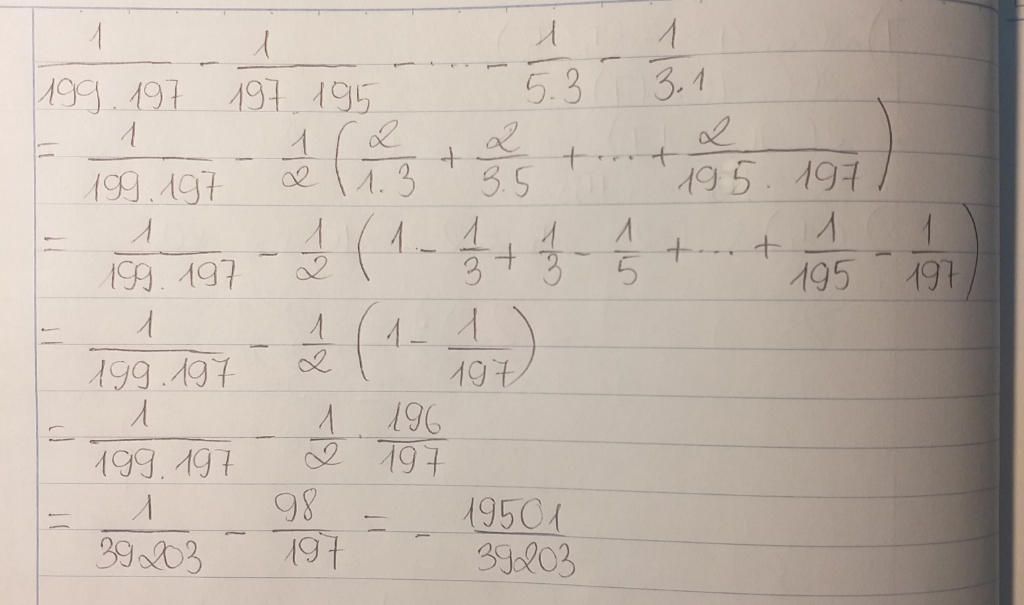 1/(199.197) - 1/(197.195) - ... - 1/(5.3) - 1/(3.1)
= 1/(199.197) - 1/2 (2/(1.3) + 2/(3.5) + ... + 2/(195.197))
= 1/(199.197) - 1/2 (1 - 1/3 + 1/3 - 1/5 + ... + 1/195 - 1/197)
= 1/(199.197) - 1/2 (1 - 1/197)
= 1/(199.197) - 1/2 . 196/197
= 1/39203 - 98/197 = - 19501/39203